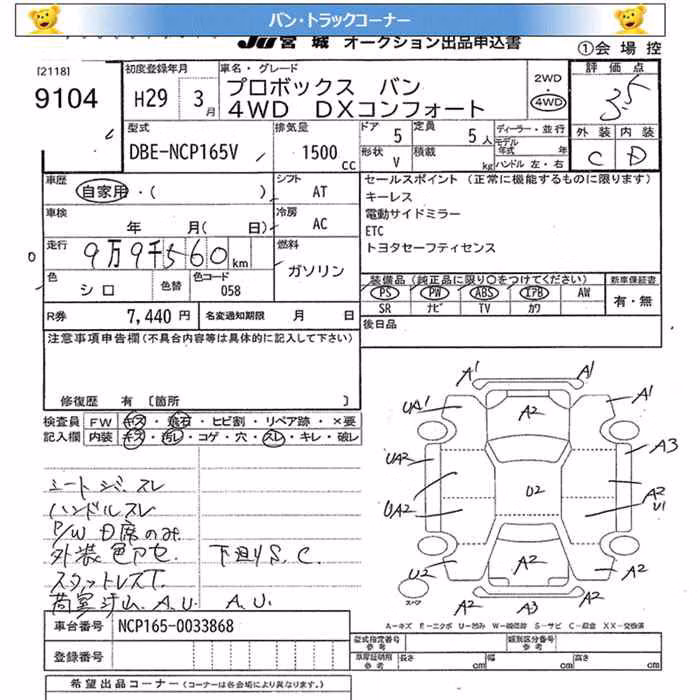 バン・トラックコーナー
JU宮城 オークション出品申込書
①会場控
[2118]
9104
初度登録年月
H29 3月
車名・グレード
プロボックス バン
4WD DXコンフォート
2WD
4WD
評価点
3.5
外装 内装
C D
型式
DBE-NCP165V
排気量
1500 cc
ドア 5
定員 5人
形状 V
積載 kg
ディーラー・並行
モデル年式 年
ハンドル 左・右
車歴
自家用・( )
シフト
AT
車検
年 月( 日)
冷房
AC
走行
9万9千560km
燃料
ガソリン
色
シロ
色替
色コード
058
R券
7,440円
名変通知期限 月 日
セールスポイント(正常に機能するものに限ります)
キーレス
電動サイドミラー
ETC
トヨタセーフティセンス
装備品(純正品に限り○をつけてください)
PS PW ABS エアB AW
SR ナビ TV カワ
新車保証書
有・無
後日品
注意事項申告欄(不具合内容等は具体的に記入して下さい)
修復歴 有 [箇所 ]
検査員
記入欄
FW キズ・飛石・ヒビ割・リペア跡・×要
内装 キズ・汚レ・コゲ・穴・スレ・キレ・破レ
シートシミ.スレ
ハンドルスレ
P/W D席のみ
外装色アセ. 下廻りS.C.
スタットレスT.
荷室汚山.A.U. A.U.
A1
A1
UA1
A1
A2
UA2
A3
U2
UA2
A2
U1
U2
A2
A2
A2
A3
A2
スペア
A-キズ E-エクボ U-凹み W-補修跡 S-サビ C-腐食 XX-交換済
車台番号
NCP165-0033868
登録番号
型式指定番号
参考
類別区分番号
参考
車庫証明用
参考
長さ cm
幅 cm
高さ cm
希望出品コーナー(コーナーは各会場により異なります。)